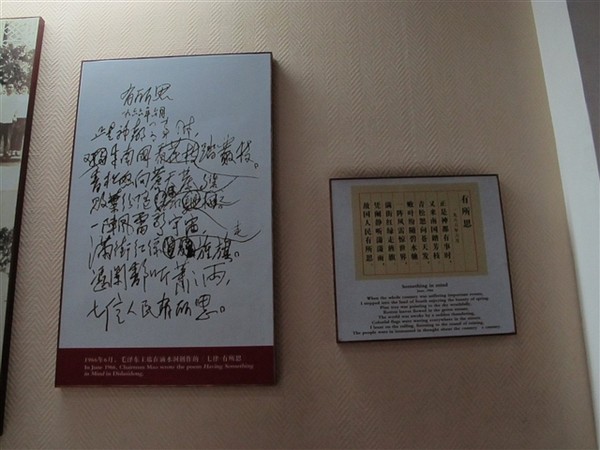 有所思
正是神都有事时,
又来南国踏丛枝。
青松怒向苍天发
败叶纷随
一阵风雷惊宇宙,
满街红绿走旌旗。
凭阑静听萧雨,
七亿人民有所思。
1966年6月,毛泽东主席在滴水洞创作的《七律·有所思》
In June 1966, Chairman Mao wrote the poem Having Something
in Mind in Dishuidong.
有所思
一九六六年六月
正是神都有事时
又来南国踏芳枝
青松怒向苍天发
败叶纷随碧水驰
一阵风雷惊世界
满街红绿走旌旗
凭阑静听潇潇雨
故国人民有所思
Something in mind
June, 1966
When the whole century was suffering important events,
I stepped into the land of South enjoying the beauty of spring.
Pine tree was pointing to the sky wrathfully,
Rotten leaves floated in the green stream.
The world was awoke by a sudden thundering,
Colorful flags were waving everywhere in the street.
I leant on the railing, listening to the sound of raining,
The people were in immersed in thought about the country